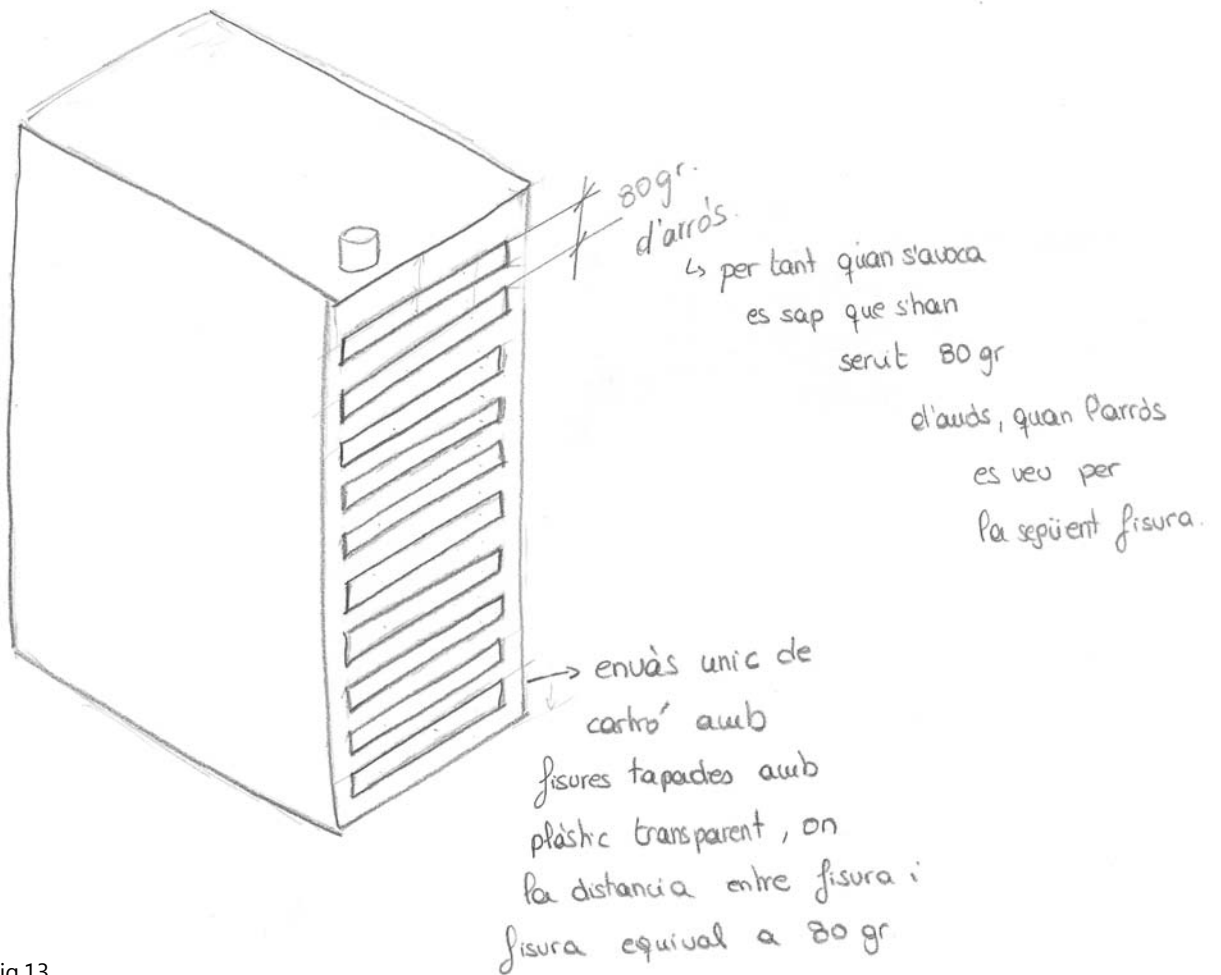 80gr.
d'arròs.
↳ per tant quan s'avoca
es sap que s'han
servit 80 gr
d'arròs, quan l'arròs
es veu per
la següent fisura.
→ envàs unic de
cartró amb
fisures tapades amb
plàstic transparent, on
la distancia entre fisura i
fisura equival a 80 gr
ig 13